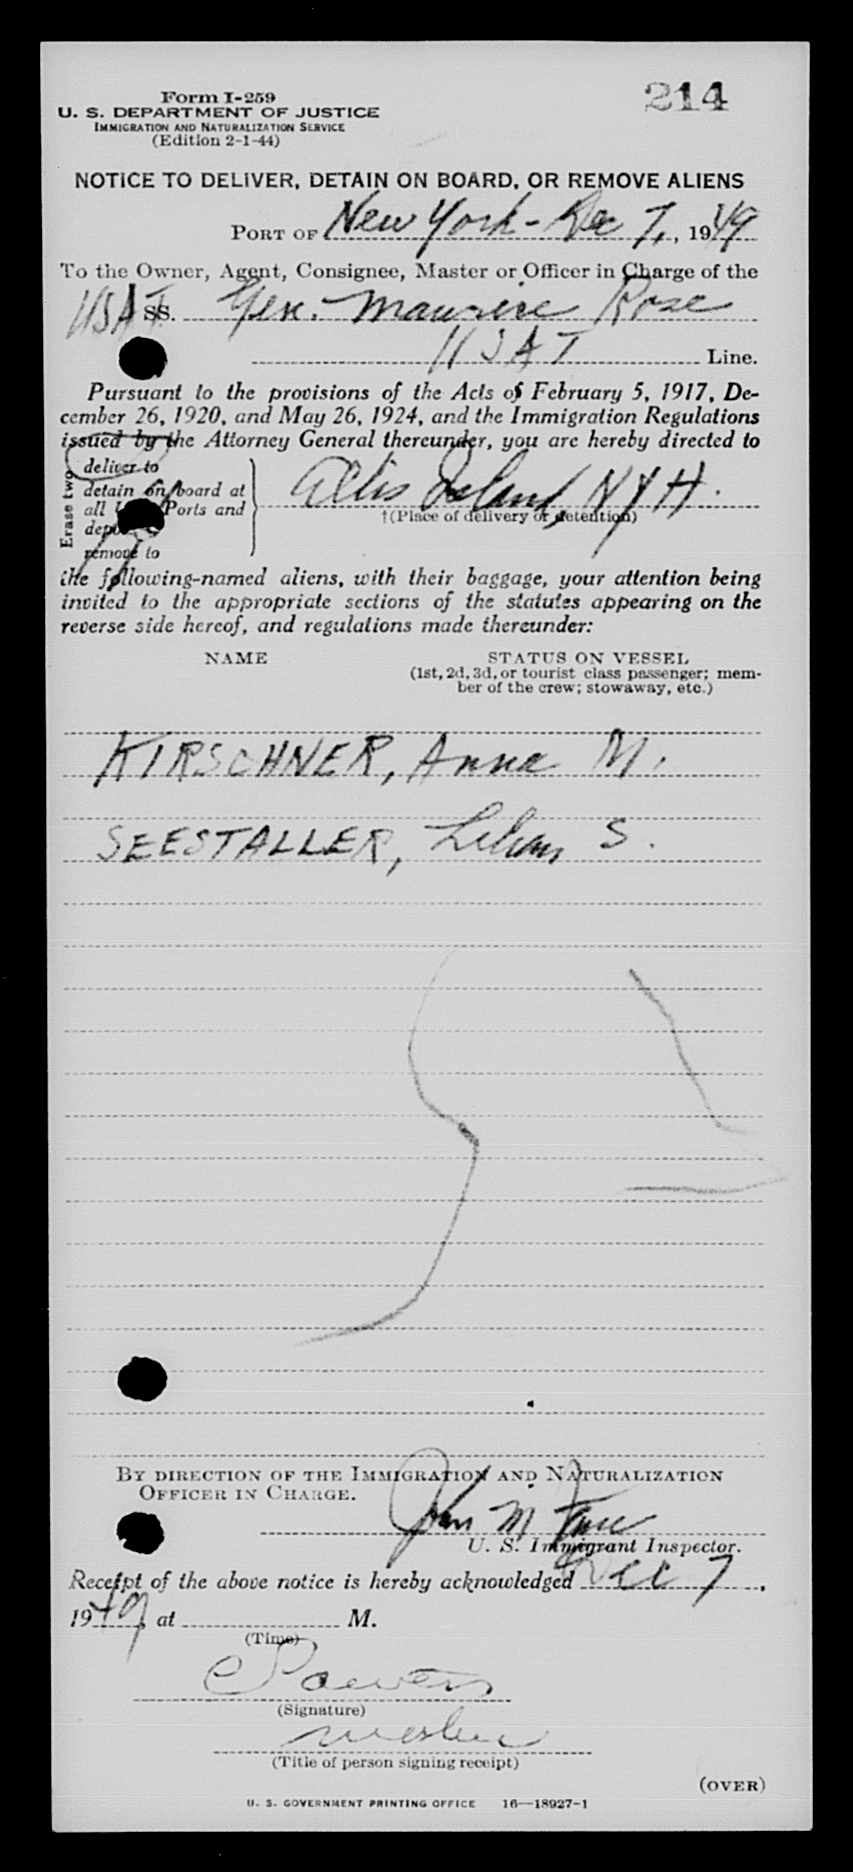 Form I-259
214
U. S. DEPARTMENT OF JUSTICE
IMMIGRATION AND NATURALIZATION SERVICE
(Edition 2-1-44)
NOTICE TO DELIVER, DETAIN ON BOARD, OR REMOVE ALIENS
PORT OF New York - Dec 7, 1949
To the Owner, Agent, Consignee, Master or Officer in Charge of the
USAT SS. Gen. Maurice Rose
USAT Line.
Pursuant to the provisions of the Acts of February 5, 1917, De-
cember 26, 1920, and May 26, 1924, and the Immigration Regulations
issued by the Attorney General thereunder, you are hereby directed to
Erase two
deliver to
detain on board at
all Ports and
remove to
Ellis Island, NYH.
†(Place of delivery or detention)
the following-named aliens, with their baggage, your attention being
invited to the appropriate sections of the statutes appearing on the
reverse side hereof, and regulations made thereunder:
NAME
STATUS ON VESSEL
(1st, 2d, 3d, or tourist class passenger; mem-
ber of the crew; stowaway, etc.)
KIRSCHNER, Anna M.
SEESTALLER, Lilian S.
BY DIRECTION OF THE IMMIGRATION AND NATURALIZATION
OFFICER IN CHARGE.
John M
U. S. Immigrant Inspector.
Receipt of the above notice is hereby acknowledged Dec 7,
1949, at M.
(Time)
C Powers
(Signature)
(Title of person signing receipt)
(OVER)
U. S. GOVERNMENT PRINTING OFFICE 16—18927-1